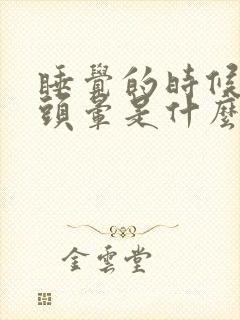 睡覺的時候
頭暈是什麼
金雲堂